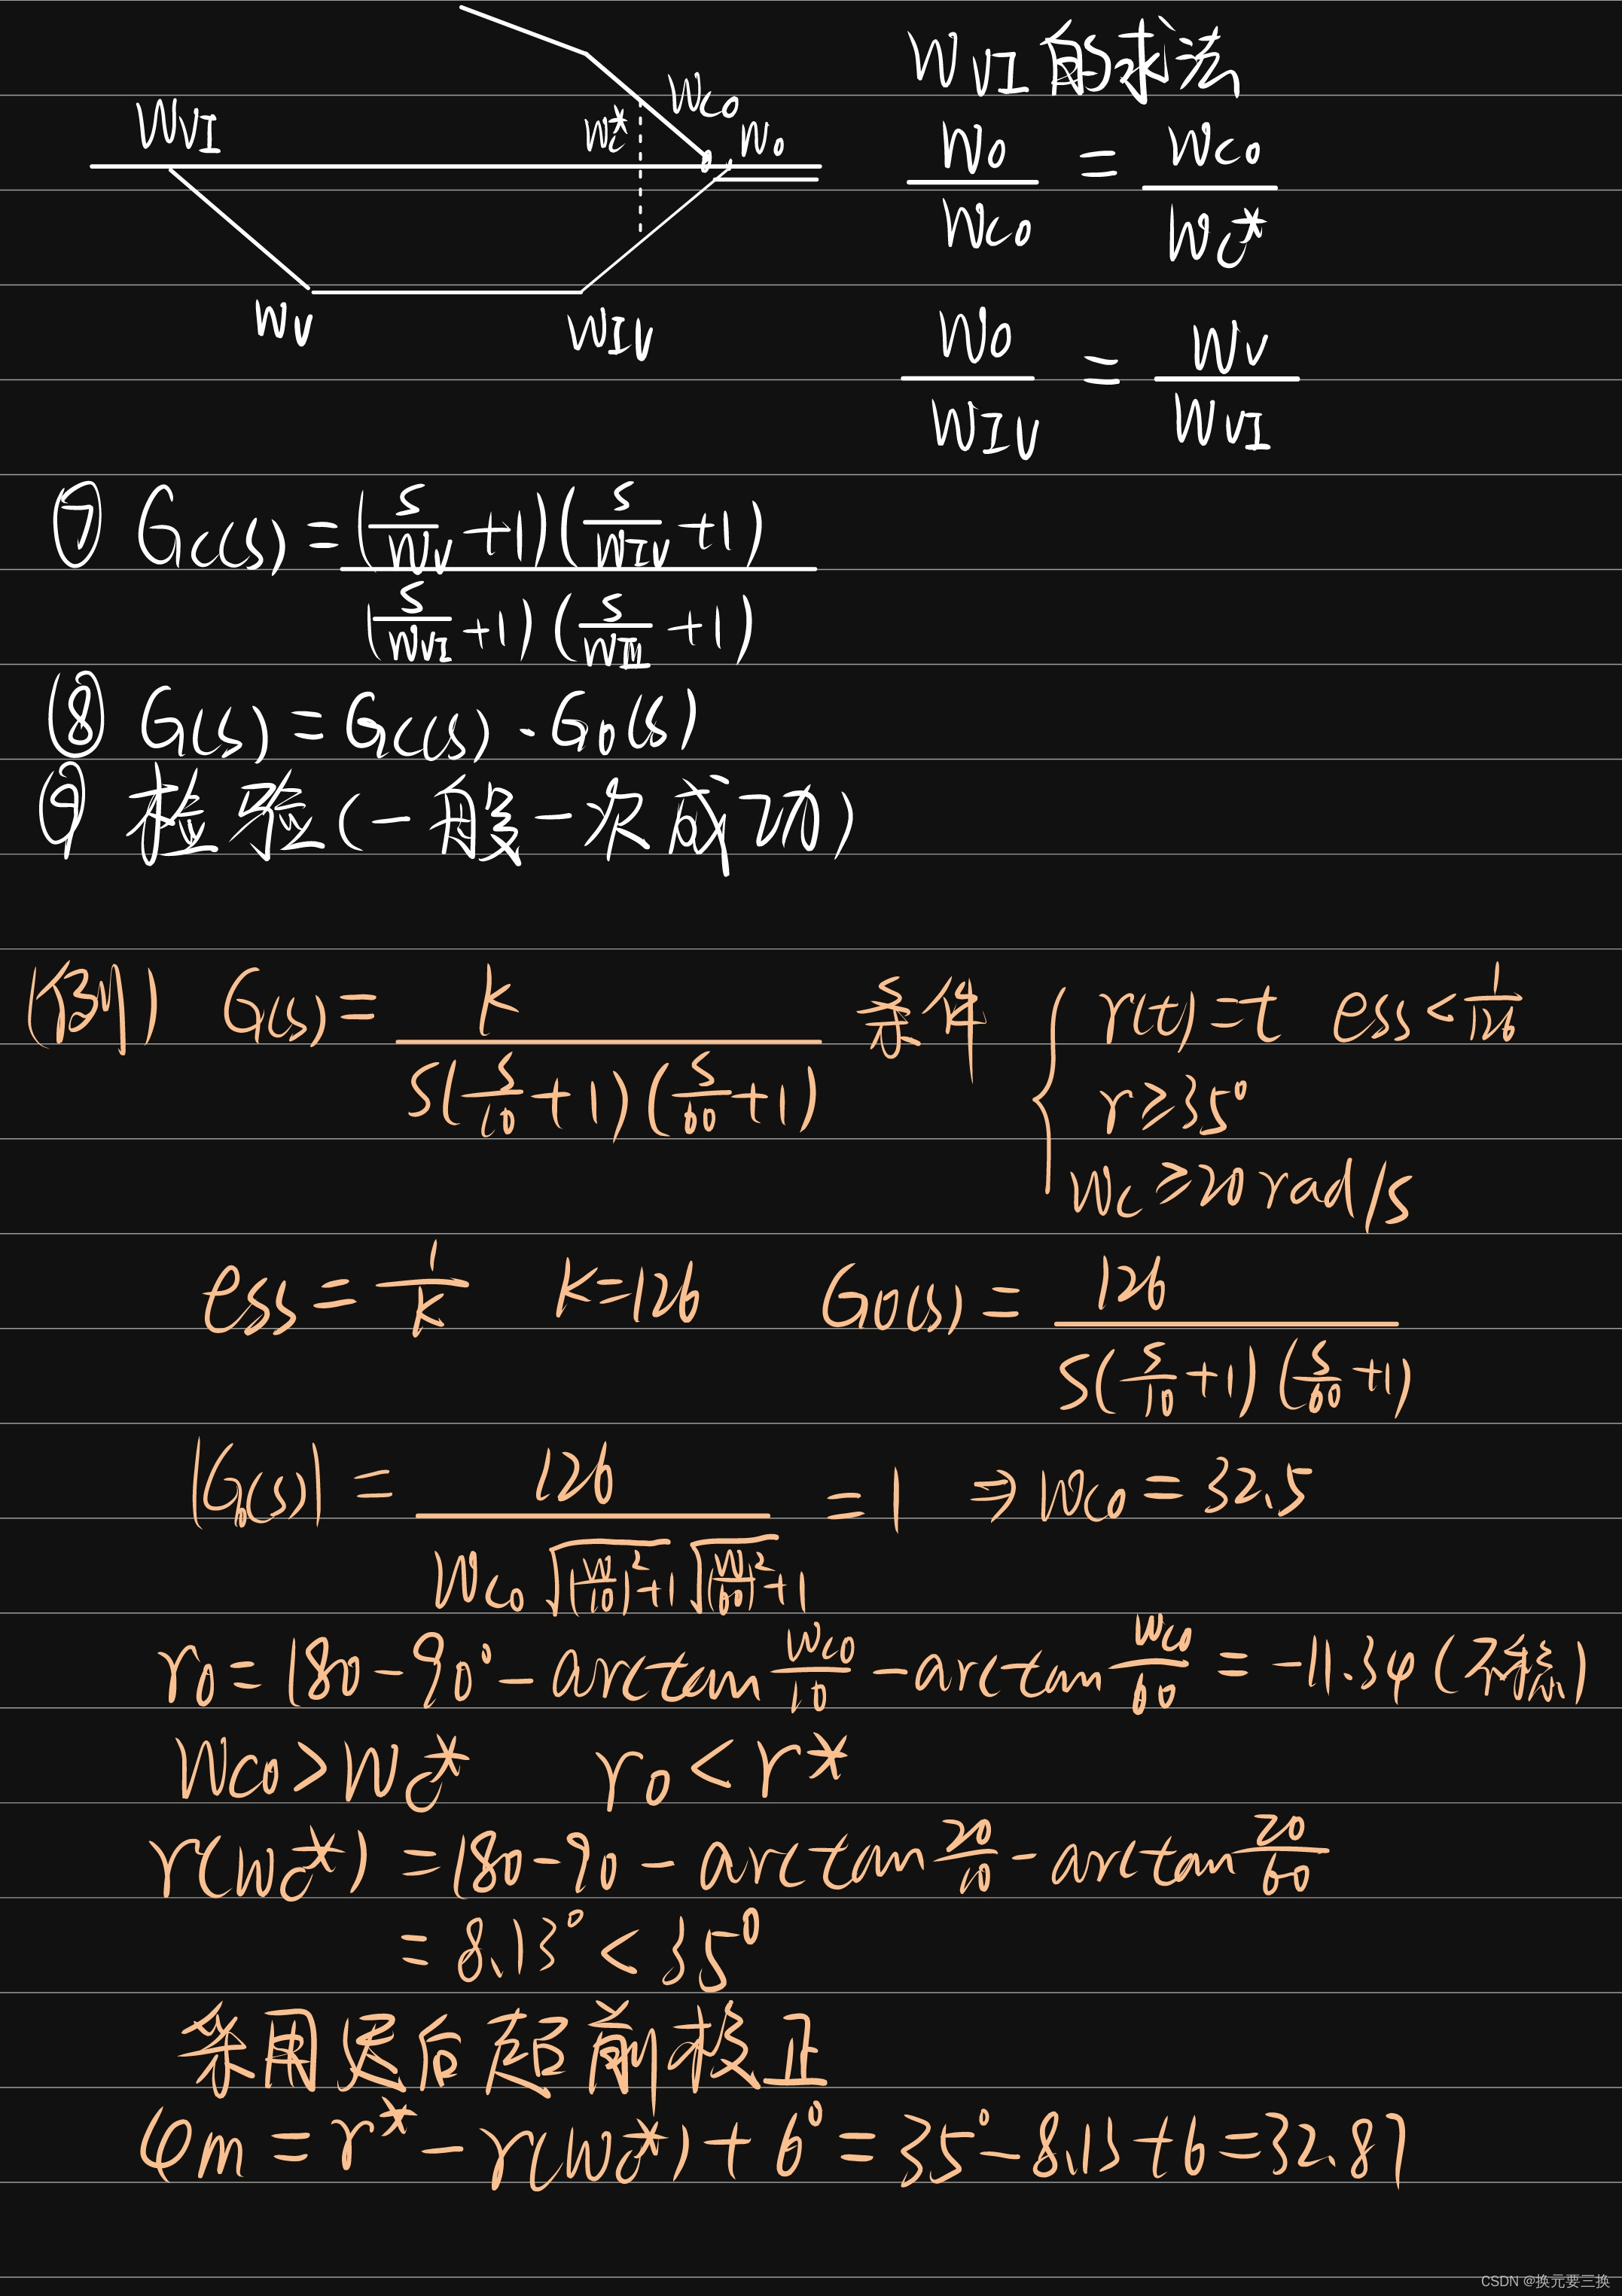 W_VI 的求法
W_VI W_c* W_c0 W_0
W_V W_IV
W_0 / W_c0 = W_c0 / W_c*
W_0 / W_IV = W_V / W_VI
⑦ Gc(s) = (s/W_V + 1)(s/W_IV + 1) / (s/W_VI + 1)(s/W_III + 1)
⑧ G(s) = Gc(s) · G0(s)
⑨ 检验(一般一次成功)
(例) G(s) = K / S(s/10 + 1)(s/60 + 1) 条件 { r(t) = t ess < 1/126
r ≥ 35°
Wc ≥ 20 rad/s
ess = 1/K K = 126 G0(s) = 126 / S(s/10 + 1)(s/60 + 1)
|G0(s)| = 126 / W_c0 √((W/10)² + 1) √((W/60)² + 1) = 1 ⇒ W_c0 = 32.5
r0 = 180 - 90° - arctan W_c0/10 - arctan W_c0/60 = -11.34 (不稳)
W_c0 > W_c* r0 < r*
r(W_c*) = 180 - 90 - arctan 20/10 - arctan 20/60
= 8.13° < 35°
采用迟后超前校正
φm = r* - r(W_c*) + 6° = 35° - 8.13 + 6 = 32.87
CSDN @换元要三换